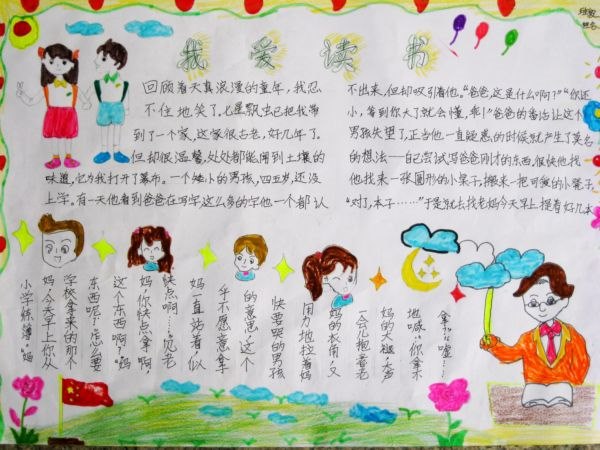 班级
姓名
我爱读书
回顾着天真浪漫的童年，我忍
不住地笑了。七星瓢虫已把我带
到了一个家，这家很古老，好几年了。
但却很温馨，处处都能闻到土壤的
味道，它为我打开了幕布。一个矮小的男孩，四五岁，还没
上学。有一天他看到爸爸在写字这么多的字他一个都认
不出来，但却吸引着他。“爸爸，这是什么啊？”“你还
小，等到你大了就会懂，乖！”爸爸的番话让这个
男孩失望了，正当他一直疑惑的时候就产生了莫名
的想法——自己尝试写爸爸刚才的东西，很快他找
他找来一张圆形的小桌子，搬来一把可爱的小凳子
“对了，本子……”于是就去找老妈今天早上提着好几本
小学练簿。“妈
妈今天早上你从
学校拿来的那个
东西呢？”“怎么要
这个东西啊？”“妈
妈你快点拿啊
快点啊……”见老
妈一直站着，似
乎不愿意拿
的意思。这个
快要哭的男孩
用力地拉着妈
妈的衣角，又
一会儿抱着老
妈的大腿，大声
地喊：“你拿不
拿”“喔…